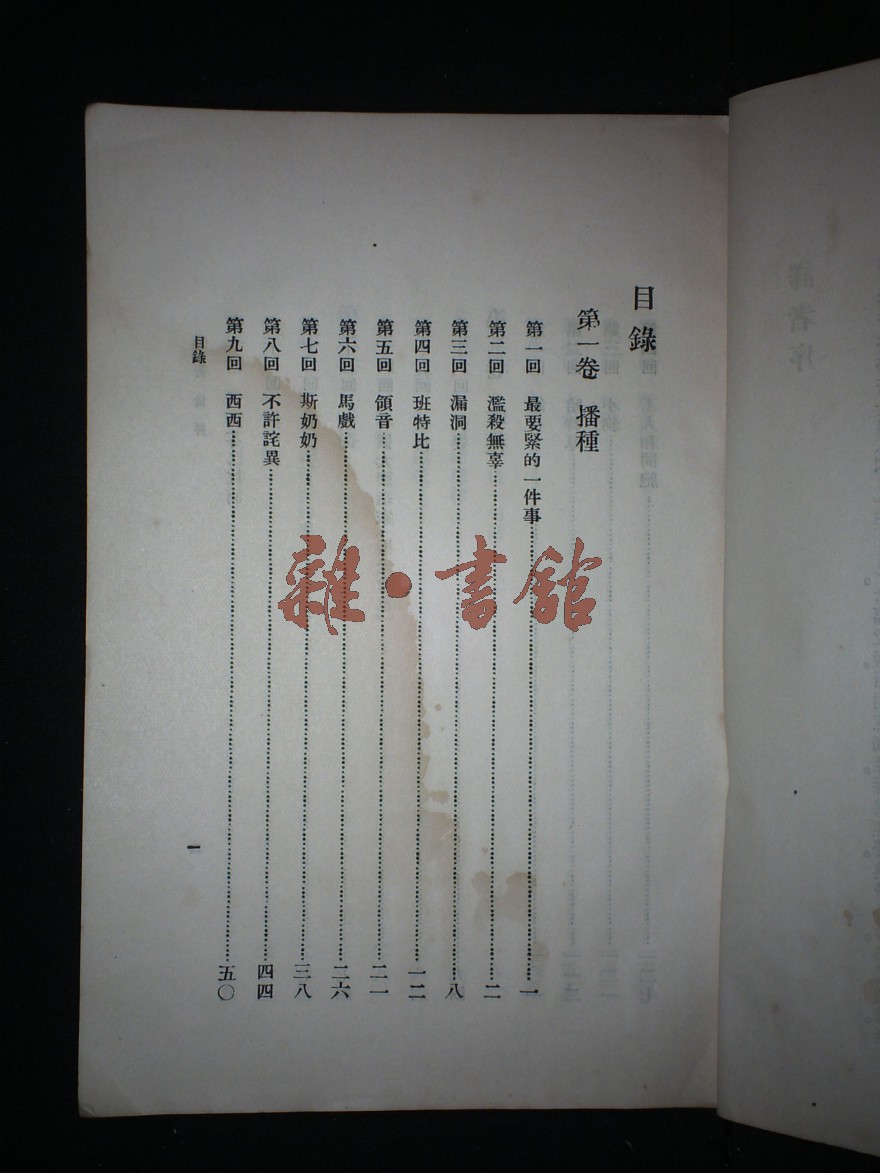 譯者序
目錄
第一卷 播種
第一回 最要緊的一件事 一
第二回 濫殺無辜 二
第三回 漏洞 八
第四回 班特比 一二
第五回 領音 二一
第六回 馬戲 二六
第七回 斯奶奶 三八
第八回 不許詫異 四四
第九回 西西 五〇
目錄 一
雜·書館